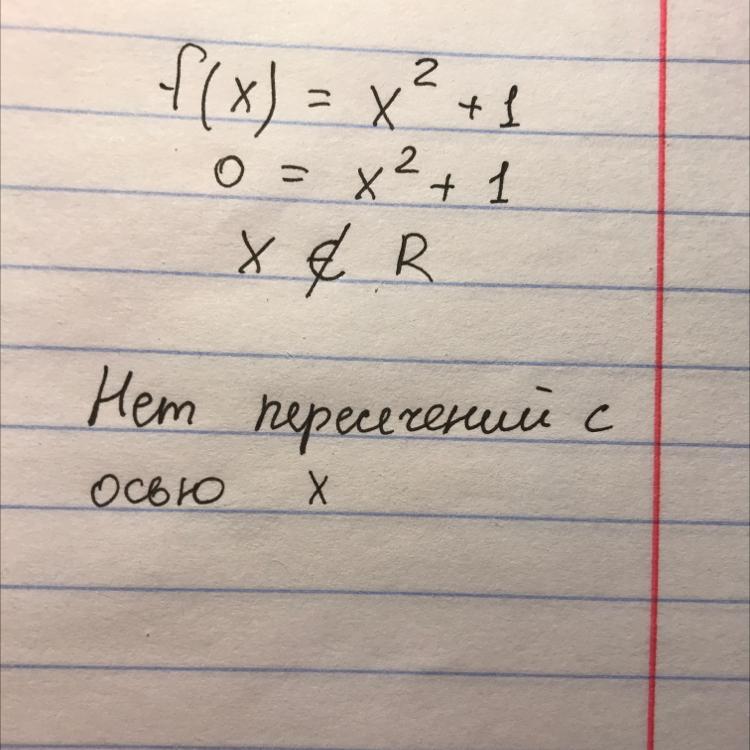 f(x) = x² + 1
0 = x² + 1
x ∉ R
Нет пересечений с
осью x